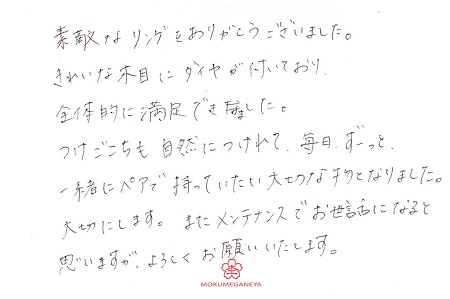 素敵なリングをありがとうございました。
きれいな木目にダイヤが付いており、
全体的に満足できました。
つけごこちも自然につけれて、毎日、ずーっと、
一緒にペアで持っていたい大切な物となりました。
大切にします。またメンテナンスでお世話になると
思いますが、よろしくお願いいたします。
MOKUMEGANEYA